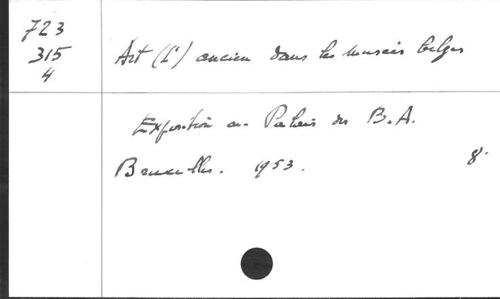 723
315
4
Art (L') ancien dans les musées belges
Exposition au Palais des B.A.
Bruxelles. 1953. 8°